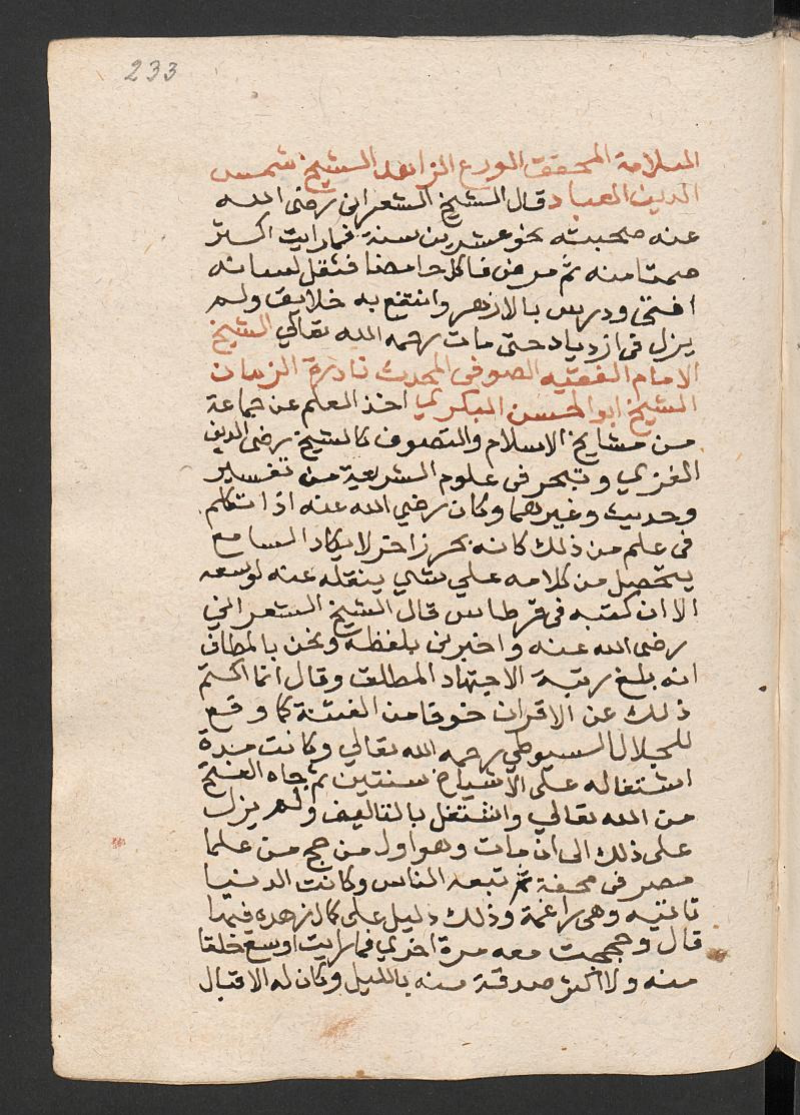 233
العلامة المحقق الورع الزاهد الشيخ شمس
الدين العبادي قال الشيخ الشعراني رضى الله
عنه صحبته نحو عشرين سنة فما رايت اكثر
صمتا منه ثم مرض فالحا حامضا فثقل لسانه
افتى ودرس بالازهر وانتفع به خلايق ولم
يزل فى ازدياد حتى مات رحمه الله تعالي الشيخ
الامام الفقيه الصوفى المحدث نادرة الزمان
الشيخ ابو الحسن البكري اخذ العلم عن جماعة
من مشايخ الاسلام والتصوف كالشيخ رضى الدين
الغزي وتبحر فى علوم الشريعة من تفسير
وحديث وغيرهما وكان رضي الله عنه اذا تكلم
فى علم من ذلك كانه بحر زاخر لا يكاد السامع
يتحصل من كلامه علي شي ينقله عنه لوسعه
الا ان كتبه فى قرطاس قال الشيخ الشعراني
رضى الله عنه واخبرنى بلفظه ونحن بالمطاف
انه بلغ رتبة الاجتهاد المطلق وقال انما اكتم
ذلك عن الاقران خوفا من الفتنة كما وقع
للجلال السيوطي رحمه الله تعالي وكانت مدة
اشتغاله على الاشياخ سنتين ثم جاه الفتح
من الله تعالي واشتغل بالتاليف ولم يزل
على ذلك الى ان مات وهو اول من حج من علما
مصر فى محفة ثم تبعه الناس وكانت الدنيا
تاتيه وهى راغمة وذلك دليل على كمال زهده فيها
قال وحججت معه مرة اخري فما رايت اوسع خلقا
منه ولا اكثر صدقة منه بالليل وكان له الاقبال